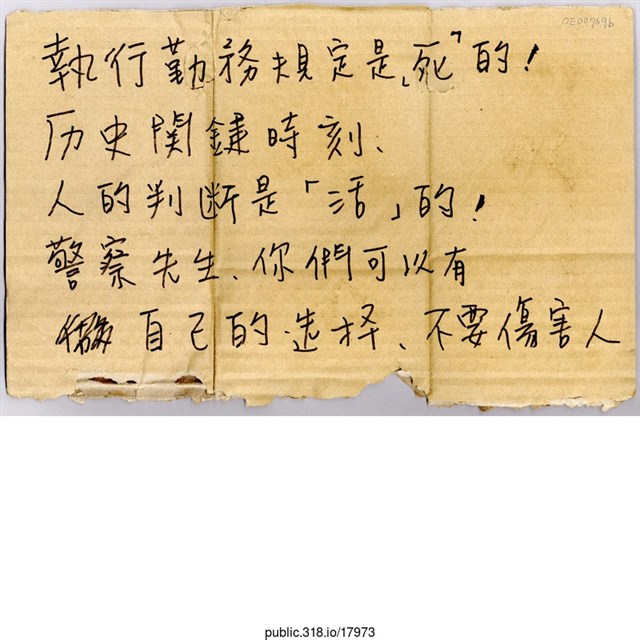 執行勤務規定是「死」的!
历史関鍵時刻、
人的判断是「活」的!
警察先生、你們可以有
自己的选择、不要傷害人
public.318.io/17973